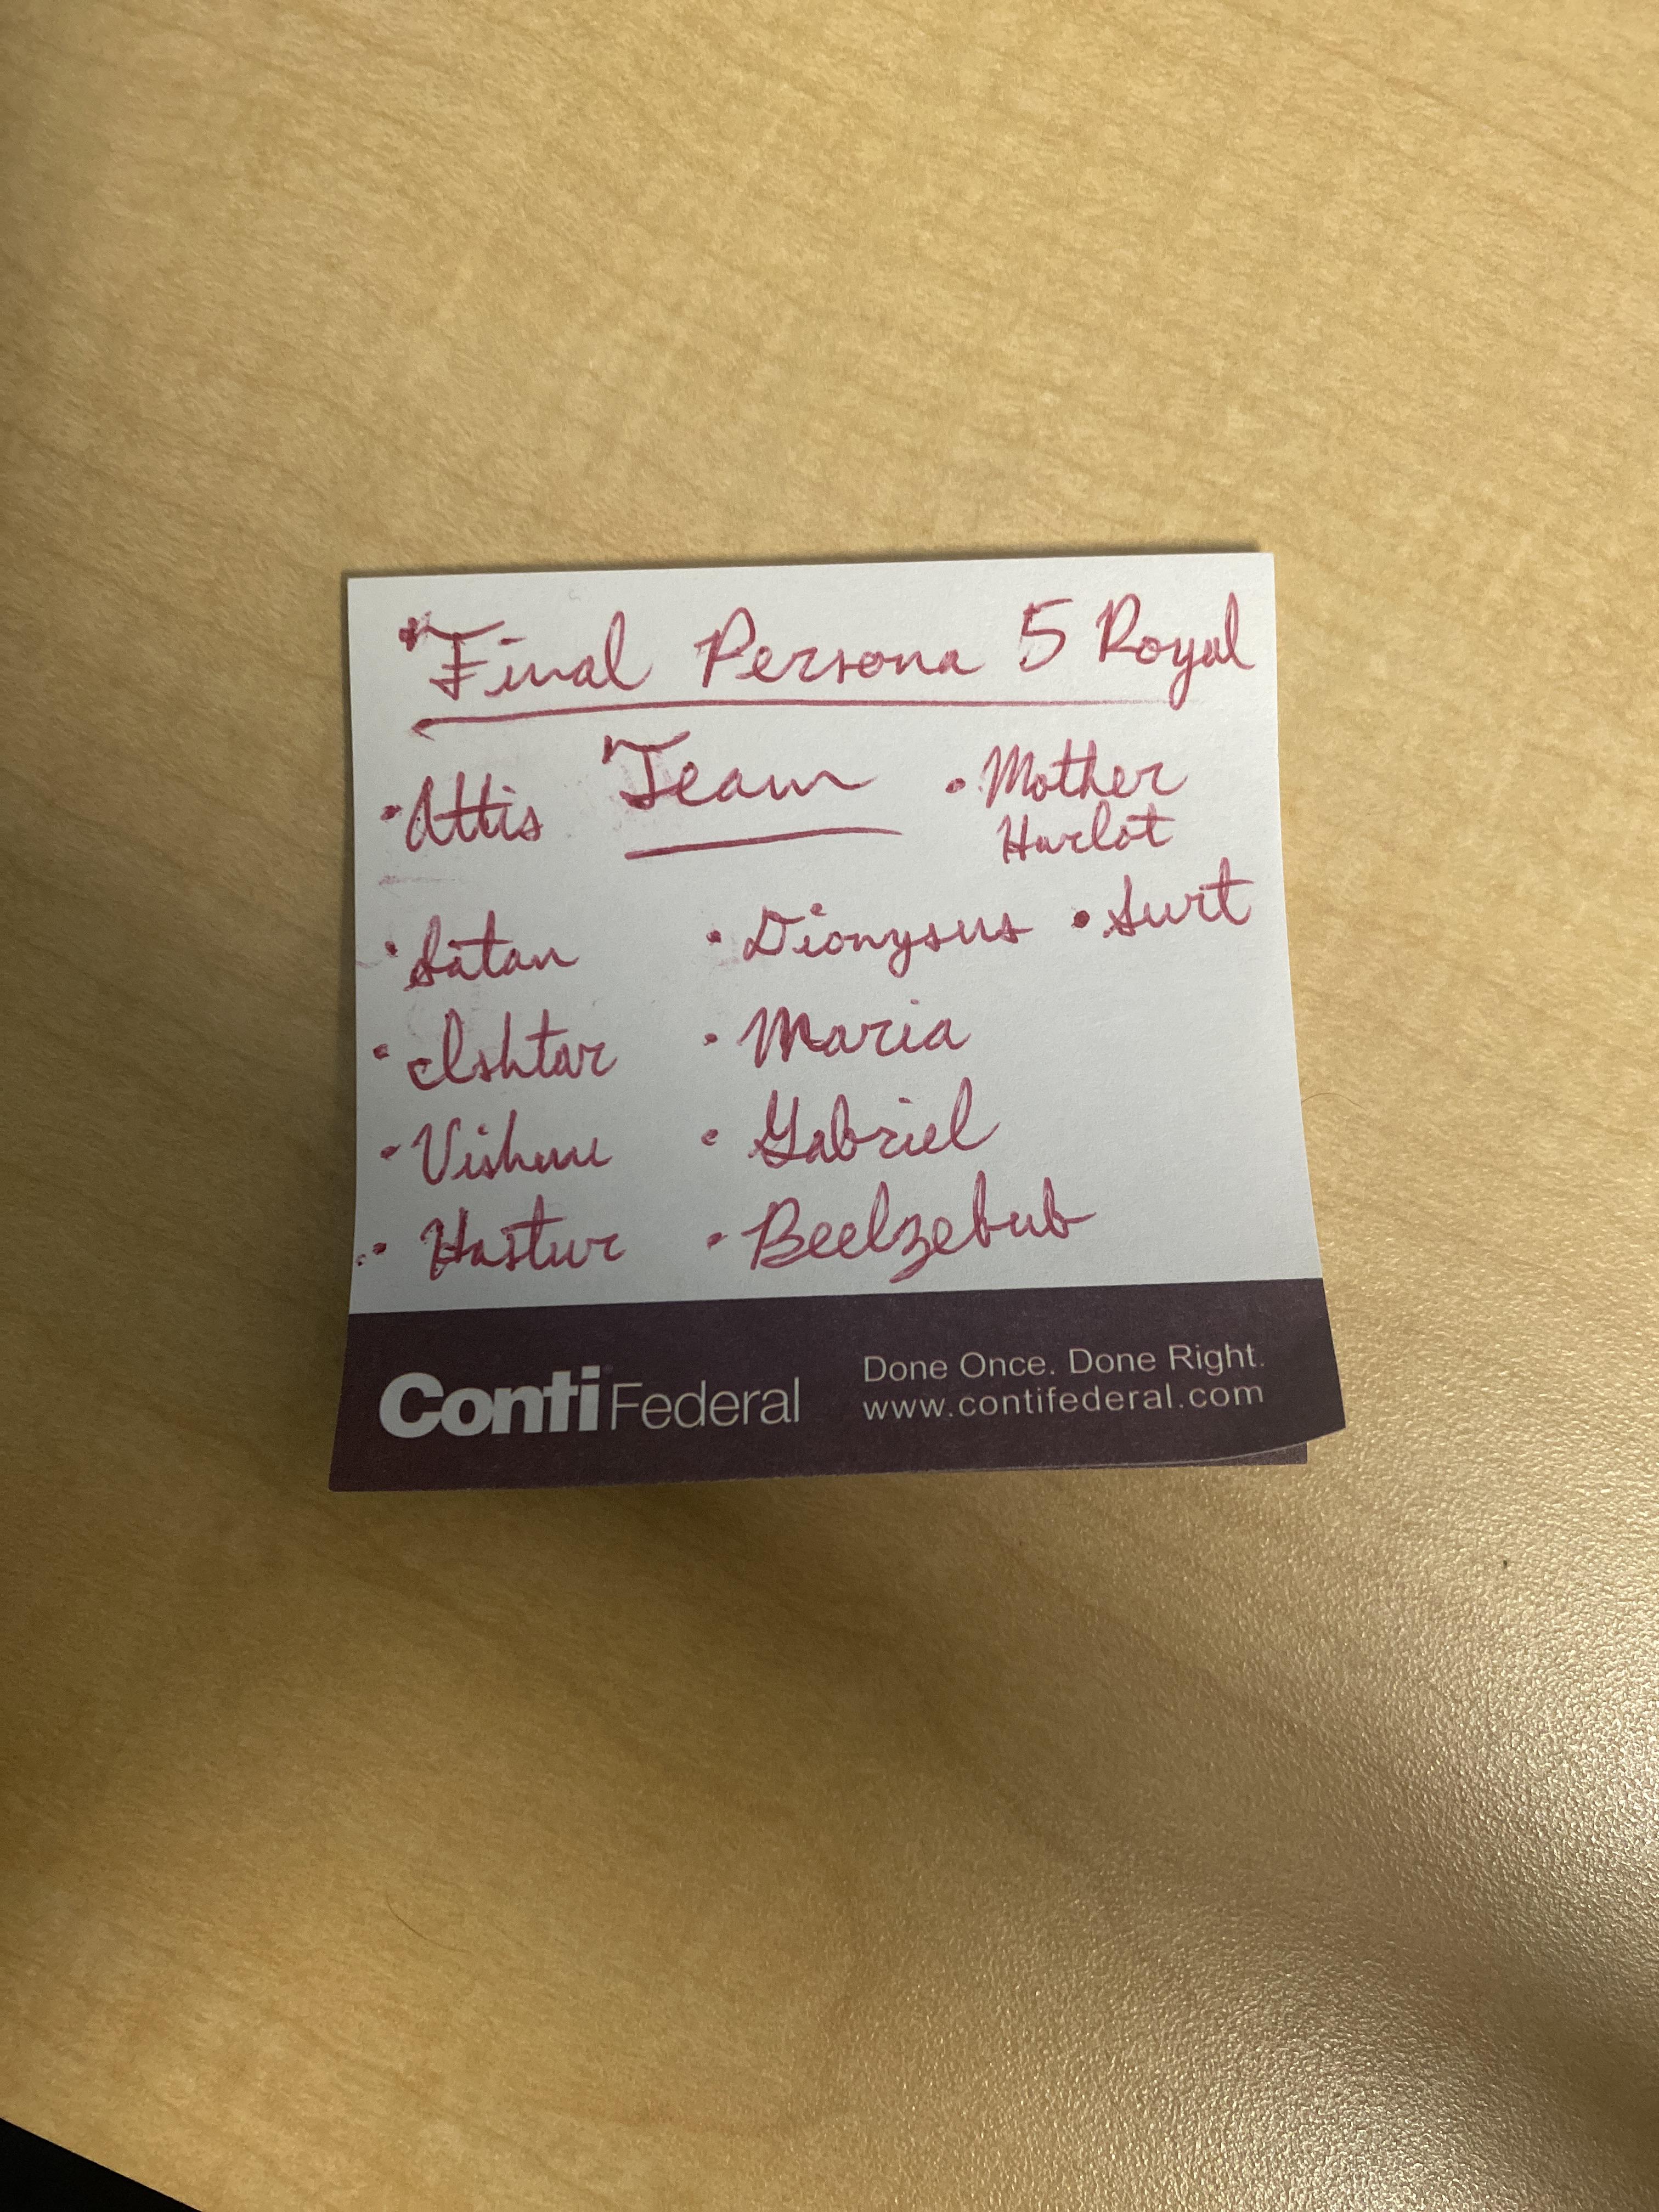 Final Persona 5 Royal
Team
• Attis
• Mother
Harlot
• Satan
• Dionysus
• Surt
• Ishtar
• Maria
• Vishnu
• Gabriel
• Hastur
• Beelzebub
Conti Federal
Done Once. Done Right.
www.contifederal.com